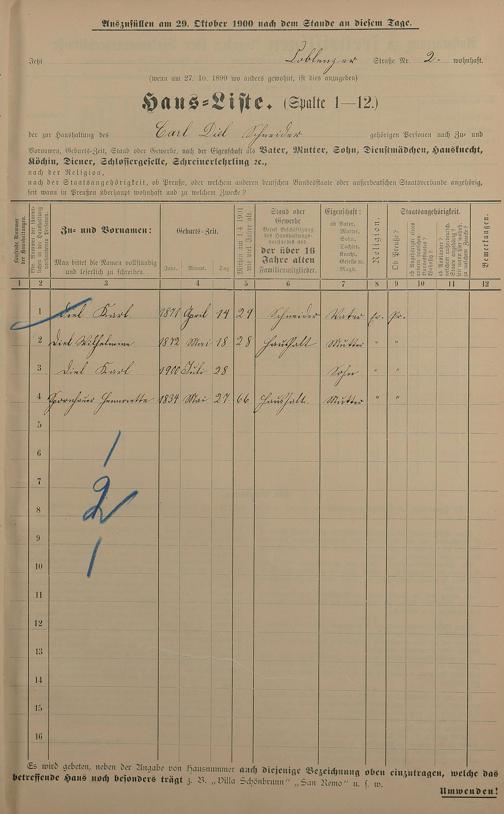 Auszufüllen am 29. Oktober 1900 nach dem Stande an diesem Tage.
Jetzt Coblenzer Straße Nr. 2. wohnhaft.
(wenn am 27. 10. 1899 wo anders gewohnt, ist dies anzugeben)
Haus-Liste. (Spalte 1—12.)
der zur Haushaltung des Carl Diel Schneider gehörigen Personen nach Zu- und
Vornamen, Geburts-Zeit, Stand oder Gewerbe, nach der Eigenschaft als Vater, Mutter, Sohn, Dienstmädchen, Hausknecht,
Köchin, Diener, Schlossergeselle, Schreinerlehrling ec.,
nach der Religion,
nach der Staatsangehörigkeit, ob Preuße, oder welchem anderen deutschen Bundesstaate oder außerdeutschen Staatsverbande angehörig,
seit wann in Preußen überhaupt wohnhaft und zu welchem Zwecke?
Zu- und Vornamen:
Man bittet die Namen vollständig und leserlich zu schreiben.
Geburts-Zeit.
Jahr. Monat. Tag
Stand oder Gewerbe
der über 16 Jahre alten Familienmitglieder.
Eigenschaft:
ob Vater, Mutter, Sohn, Tochter, Knecht, Geselle o. Magd.
Religion.
Staatsangehörigkeit.
Ob Preuße?
Bemerkungen.
1 2 3 4 5 6 7 8 9 10 11 12
1 Diel Karl 1871 April 14 29 Schneider Vater ev. Pr.
2 Diel Wilhelmine 1872 Mai 18 28 Haushalt Mutter " "
3 Diel Karl 1900 Juli 28 Sohn " "
4 Henriette 1834 Mai 27 66 Haushalt Mutter " "
5
6
7
8
9
10
11
12
13
14
15
16
1
2
1
Es wird gebeten, neben der Angabe von Hausnummer auch diejenige Bezeichnung oben einzutragen, welche das
betreffende Haus noch besonders trägt z. B. „Villa Schönbrunn" „San Remo" u. s. w.
Umwenden!